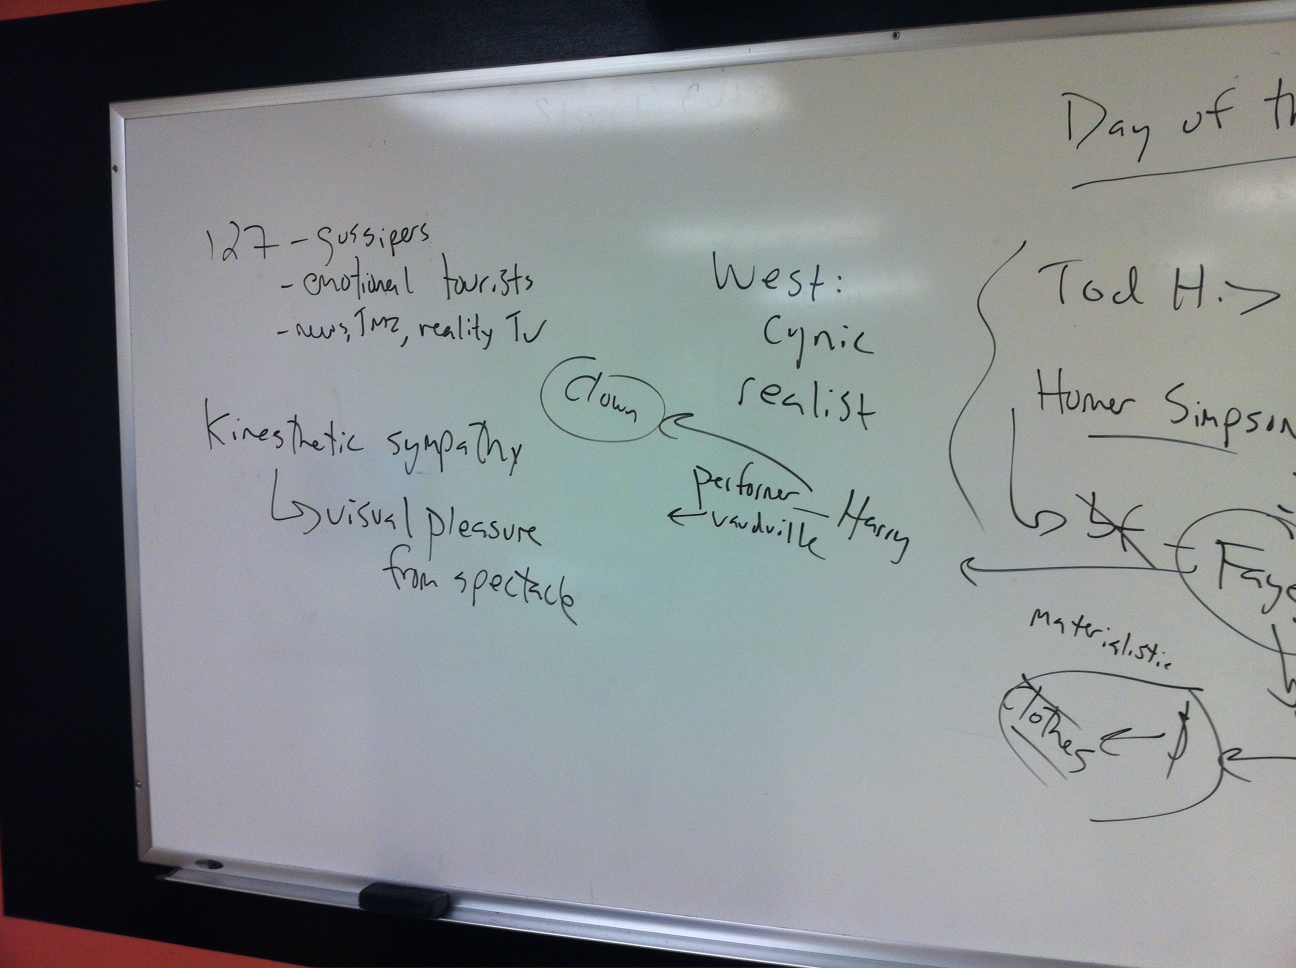 Day of th
127 - gossipers
- emotional tourists
- news, TMZ, reality TV
Kinesthetic sympathy
visual pleasure
from spectacle
Clown
West:
Cynic
realist
performer
vaudville
Harry
Tod H. >
Homer Simpson
Faye
materialistic
clothes
$